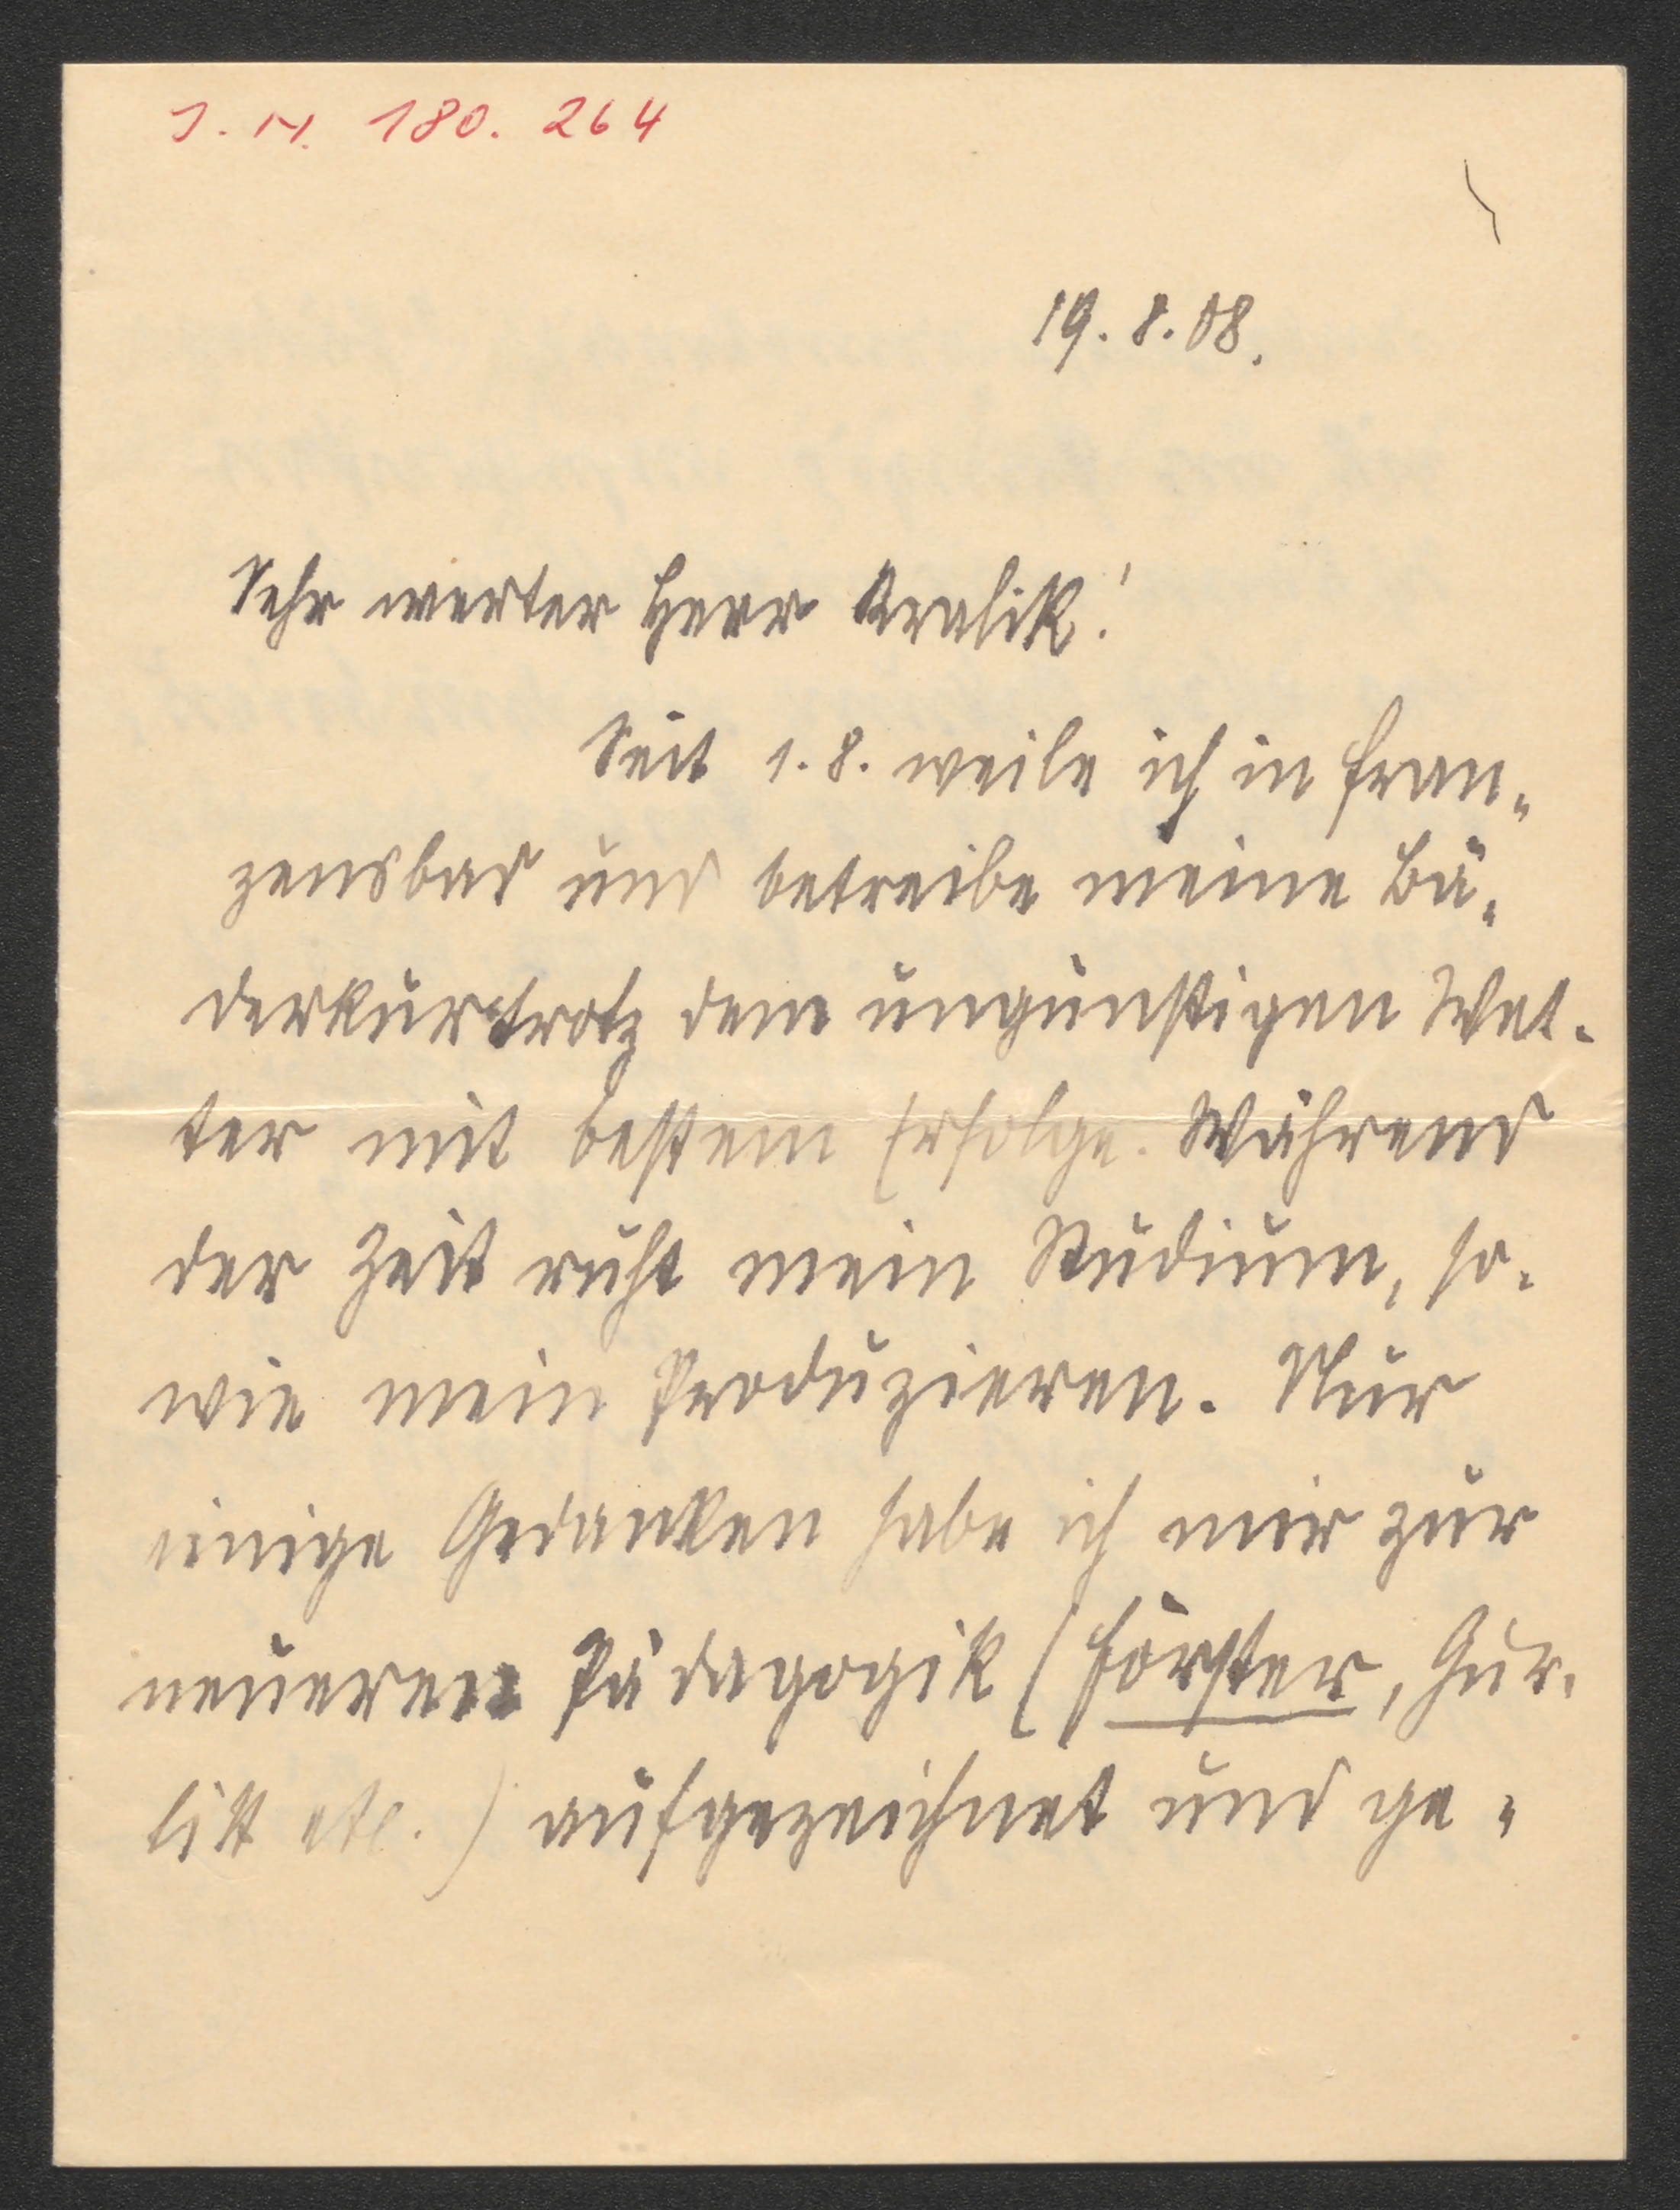 J. N. 180. 264
19. 8. 08.
Sehr werter Herr Kralik!
Seit 1. 8. weile ich in Fran-
zensbad und betreibe meine Bä-
derkur trotz dem ungünstigen Wet-
ter mit bestem Erfolge. Während
der Zeit ruht mein Studium, so-
wie mein Produzieren. Nur
einige Gedanken habe ich mir zur
neueren Pädagogik (Förster, Gur-
litt etc.) aufgezeichnet und ge-